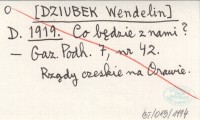 [DZIUBEK Wendelin]
D. 1919. Co będzie z nami?
— Gaz. Podh. 7, nr 42.
Rządy czeskie na Orawie.